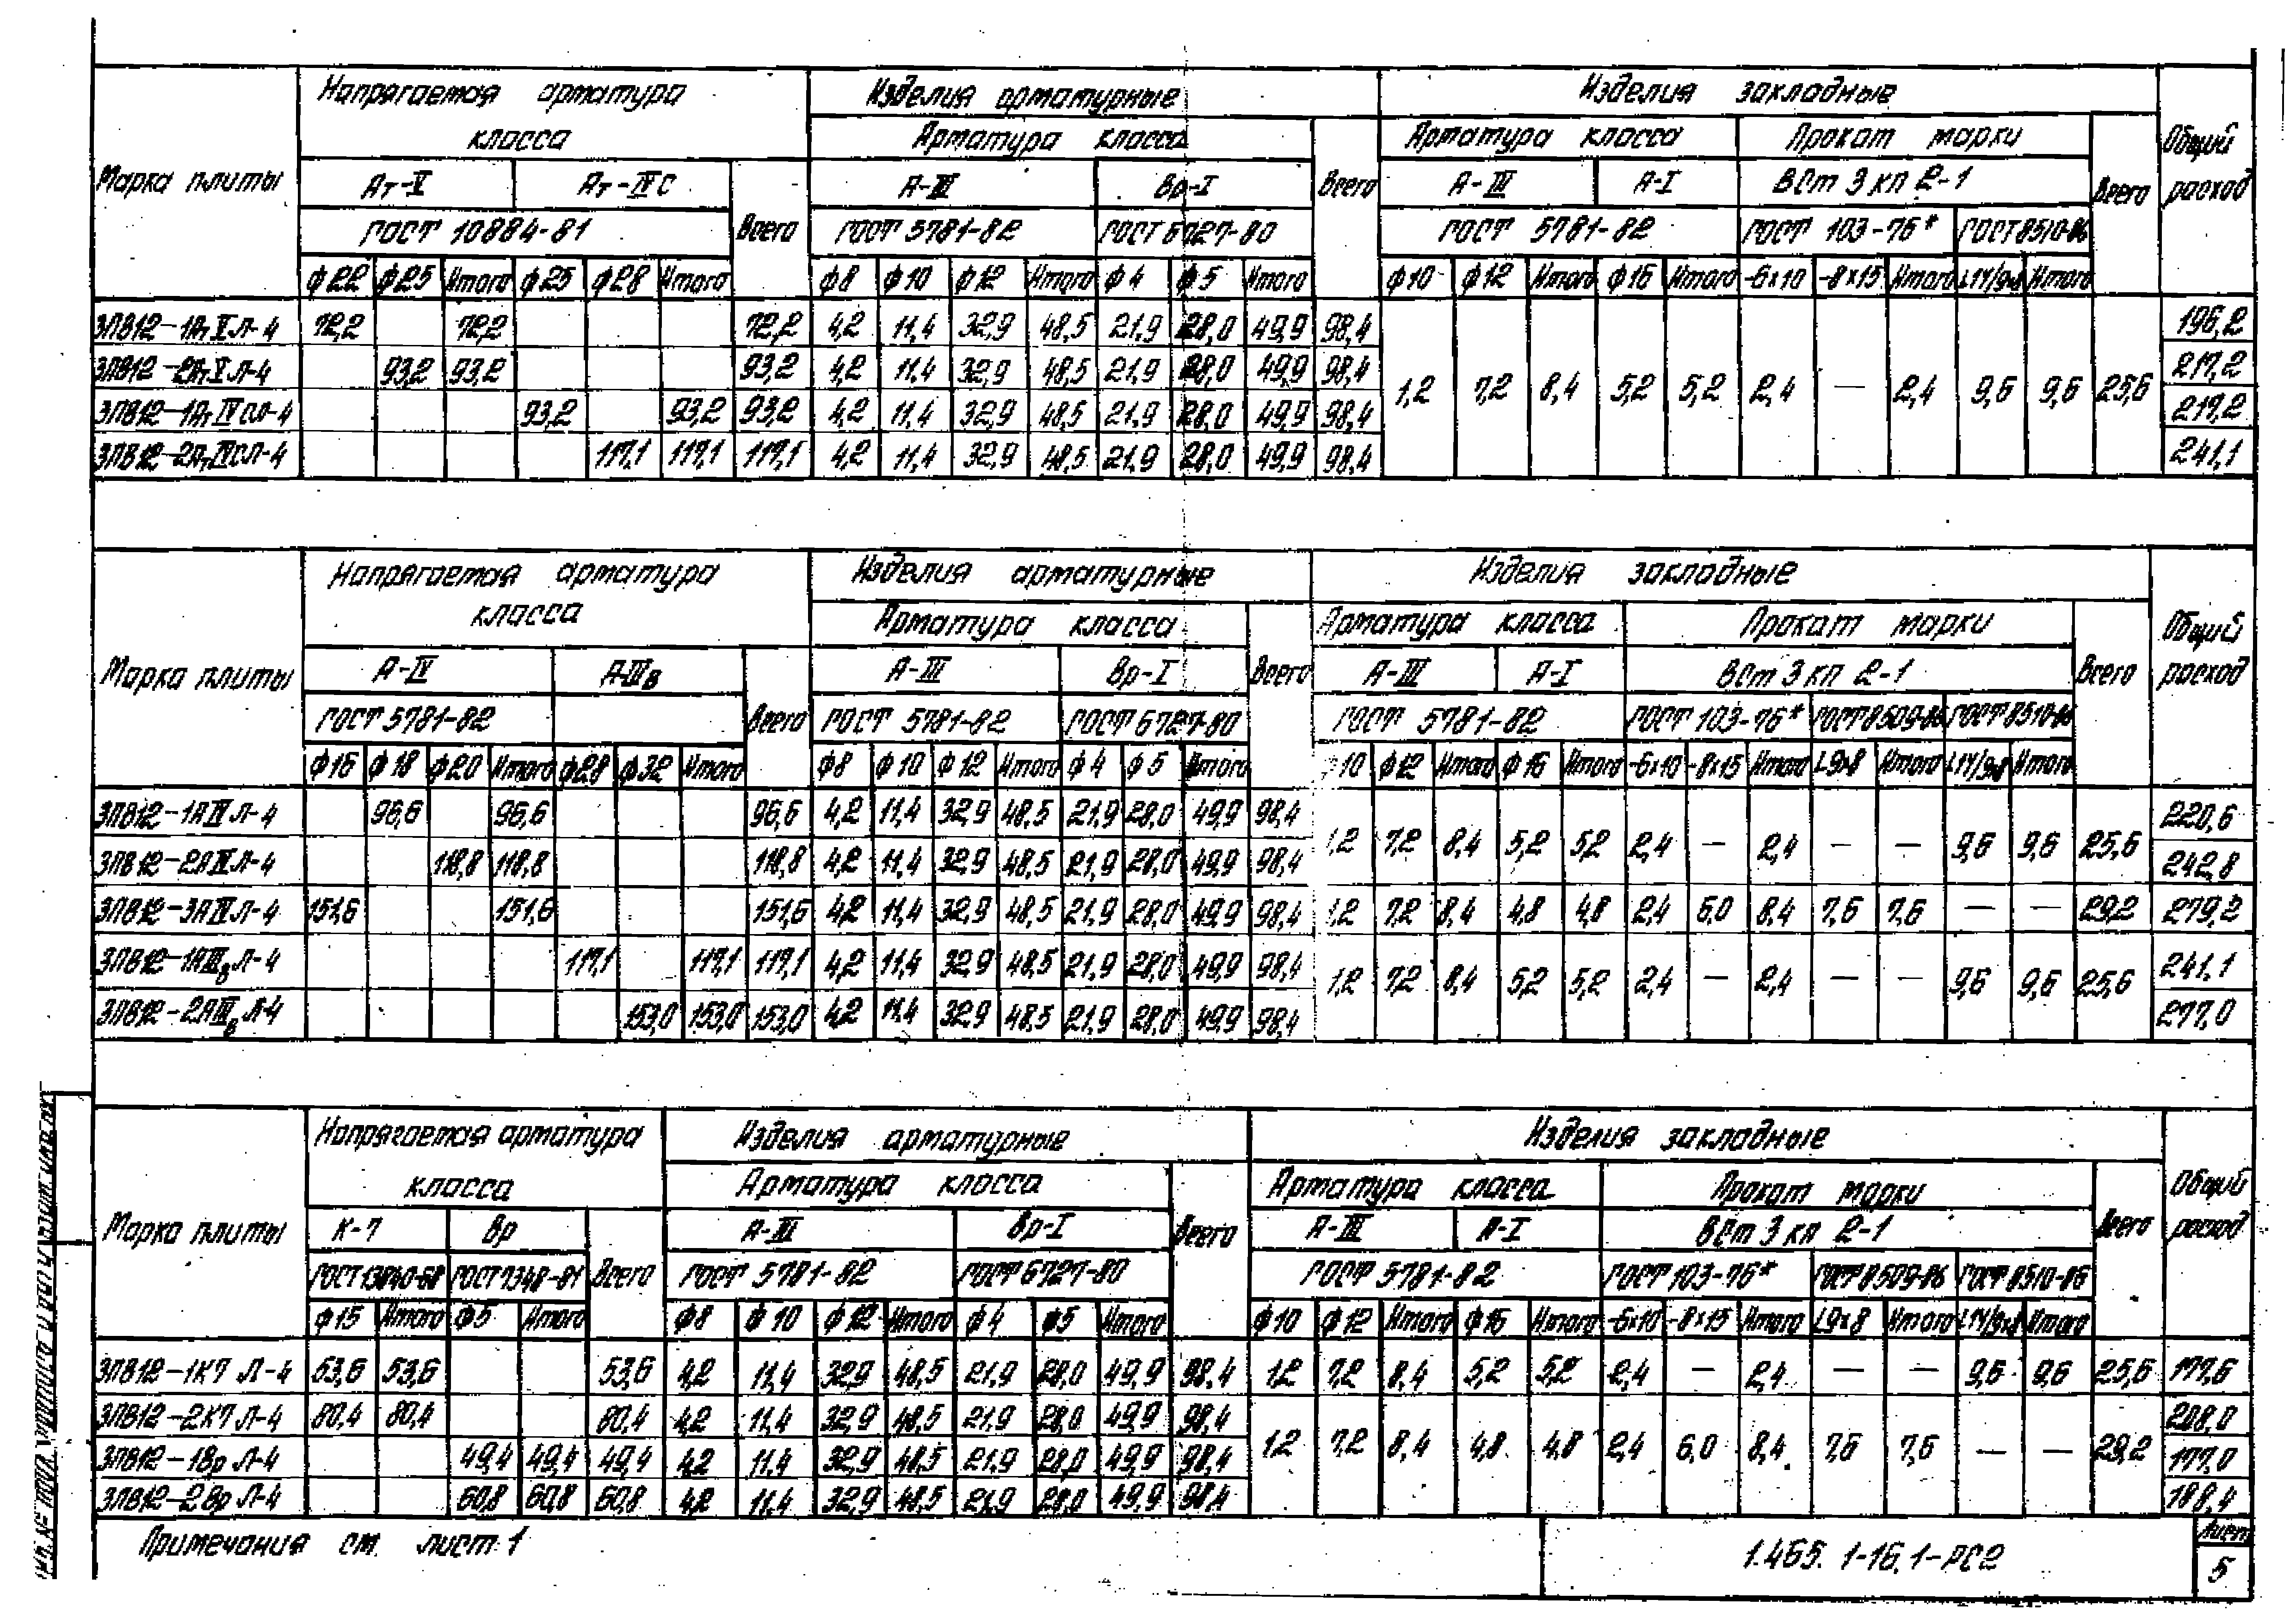 Марка плиты
Напрягаемая арматура класса
Изделия арматурные
Изделия закладные
Общий расход
Арматура класса
Всего
Арматура класса
Прокат марки
Всего
Ат-V Ат-IVС Всего А-III Вр-I А-III А-I ВСт 3 кп 2-1
ГОСТ 10884-81 ГОСТ 5781-82 ГОСТ 6727-80 ГОСТ 5781-82 ГОСТ 103-76* ГОСТ 8510-86
ф22 ф25 Итого ф25 ф28 Итого ф8 ф10 ф12 Итого ф4 ф5 Итого ф10 ф12 Итого ф16 Итого -6х10 -8х15 Итого Итого
3ПВ12-1АтVЛ-4 72,2 72,2 72,2 4,2 11,4 32,9 48,5 21,9 28,0 49,9 98,4 196,2
3ПВ12-2АтVЛ-4 93,2 93,2 93,2 4,2 11,4 32,9 48,5 21,9 28,0 49,9 98,4 217,2
1,2 7,2 8,4 5,2 5,2 2,4 — 2,4 9,6 9,6 25,6
3ПВ12-1АтIVСЛ-4 93,2 93,2 93,2 4,2 11,4 32,9 48,5 21,9 28,0 49,9 98,4 217,2
3ПВ12-2АтIVСЛ-4 117,1 117,1 117,1 4,2 11,4 32,9 48,5 21,9 28,0 49,9 98,4 241,1
Марка плиты
Напрягаемая арматура класса
Изделия арматурные
Изделия закладные
Общий расход
Арматура класса
Всего
Арматура класса
Прокат марки
Всего
А-IV А-IIIв Всего А-III Вр-I А-III А-I ВСт 3 кп 2-1
ГОСТ 5781-82 ГОСТ 5781-82 ГОСТ 6727-80 ГОСТ 5781-82 ГОСТ 103-76* ГОСТ 8509-86 ГОСТ 8510-86
ф16 ф18 ф20 Итого ф28 ф32 Итого ф8 ф10 ф12 Итого ф4 ф5 Итого 10 ф12 Итого ф16 Итого -6х10 -8х15 Итого L9х8 Итого Итого
3ПВ12-1АIVЛ-4 96,6 96,6 96,6 4,2 11,4 32,9 48,5 21,9 28,0 49,9 98,4 220,6
1,2 7,2 8,4 5,2 5,2 2,4 — 2,4 — — 9,6 9,6 25,6
3ПВ12-2АIVЛ-4 118,8 118,8 118,8 4,2 11,4 32,9 48,5 21,9 28,0 49,9 98,4 242,8
3ПВ12-3АIVЛ-4 151,6 151,6 151,6 4,2 11,4 32,9 48,5 21,9 28,0 49,9 98,4 1,2 7,2 8,4 4,8 4,8 2,4 6,0 8,4 7,6 7,6 — — 29,2 279,2
3ПВ12-1АIIIвЛ-4 117,1 117,1 117,1 4,2 11,4 32,9 48,5 21,9 28,0 49,9 98,4 241,1
1,2 7,2 8,4 5,2 5,2 2,4 — 2,4 — — 9,6 9,6 25,6
3ПВ12-2АIIIвЛ-4 153,0 153,0 153,0 4,2 11,4 32,9 48,5 21,9 28,0 49,9 98,4 277,0
Марка плиты
Напрягаемая арматура класса
Изделия арматурные
Изделия закладные
Общий расход
Арматура класса
Всего
Арматура класса
Прокат марки
Всего
К-7 Вр Всего А-III Вр-I А-III А-I ВСт 3 кп 2-1
ГОСТ 13840-68 ГОСТ 7348-81 ГОСТ 5781-82 ГОСТ 6727-80 ГОСТ 5781-82 ГОСТ 103-76* ГОСТ 8509-86 ГОСТ 8510-86
ф15 Итого ф5 Итого ф8 ф10 ф12 Итого ф4 ф5 Итого ф10 ф12 Итого ф16 Итого -6х10 -8х15 Итого L9х8 Итого Итого
3ПВ12-1К7 Л-4 53,6 53,6 53,6 4,2 11,4 32,9 48,5 21,9 28,0 49,9 98,4 1,2 7,2 8,4 5,2 5,2 2,4 — 2,4 — — 9,6 9,6 25,6 177,6
3ПВ12-2К7 Л-4 80,4 80,4 80,4 4,2 11,4 32,9 48,5 21,9 28,0 49,9 98,4 208,0
3ПВ12-1Вр Л-4 49,4 49,4 49,4 4,2 11,4 32,9 48,5 21,9 28,0 49,9 98,4 1,2 7,2 8,4 4,8 4,8 2,4 6,0 8,4 7,6 7,6 — — 29,2 177,0
3ПВ12-2Вр Л-4 60,8 60,8 60,8 4,2 11,4 32,9 48,5 21,9 28,0 49,9 98,4 188,4
Примечания см. лист 1
1.465.1-16.1-РС2
Лист
5